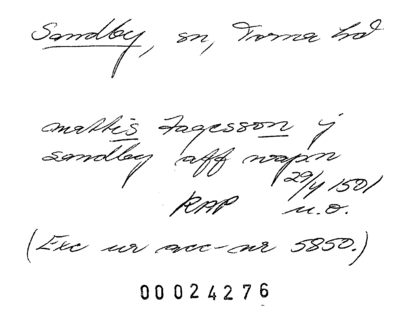 Sandby, sn, Torna hd
mattis Fagesson j
sandby aff wapn
29/4 1501
RAP u.o.
(Exc ur acc-nr 5850.)
00024276